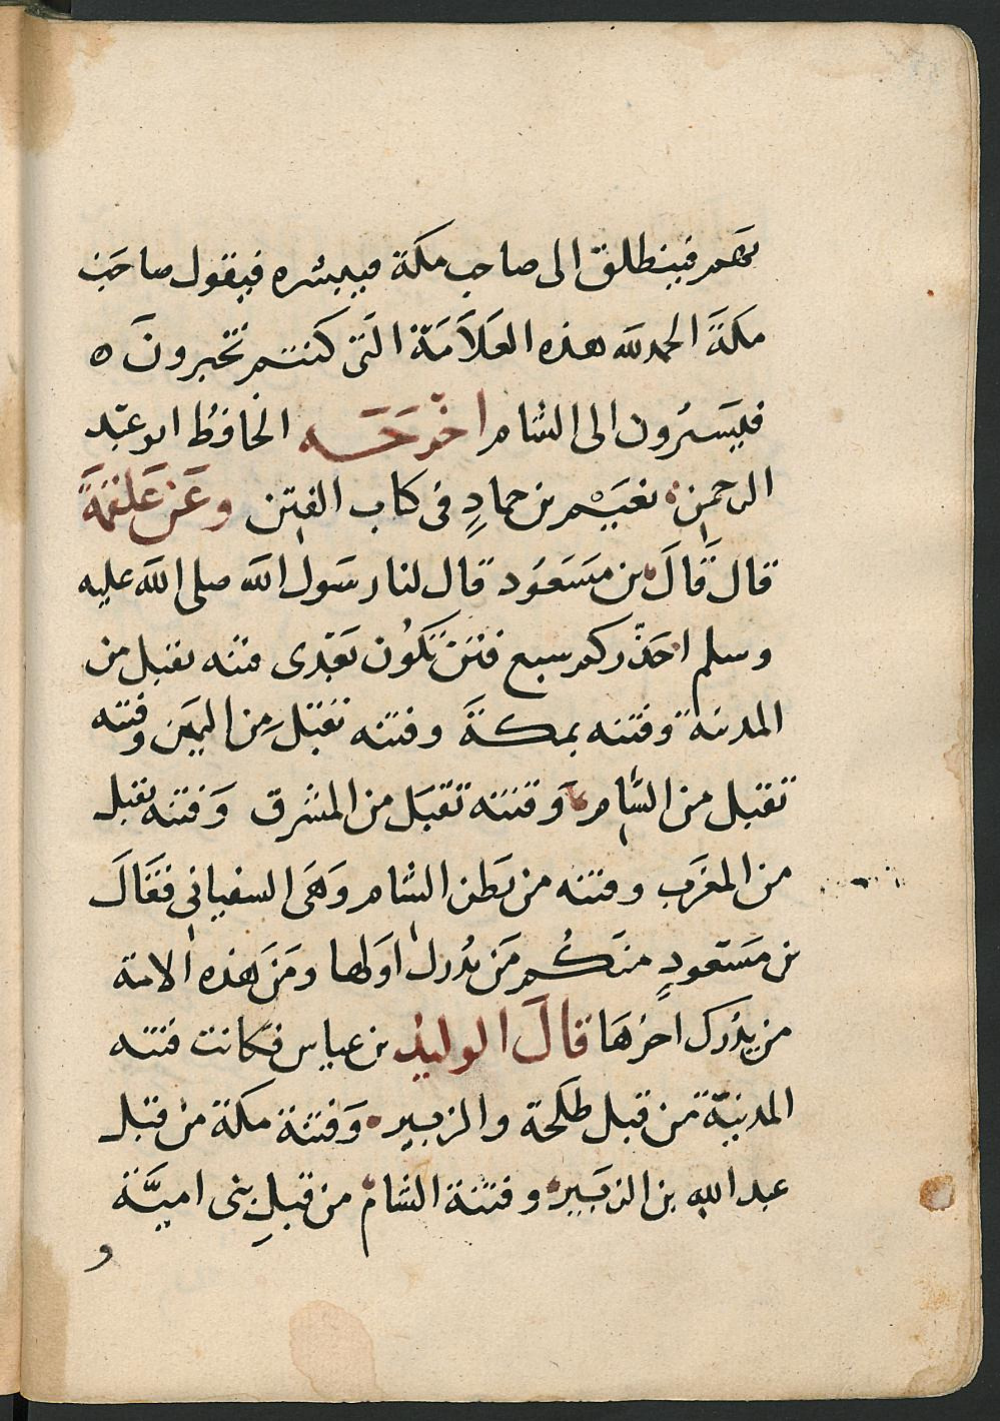 بهم فينطلق الى صاحب مكة فيبشره فيقول صاحب
مكة الحمد لله هذه العلامة التي كنتم تخبرون ه
فيسيرون الى الشام اخرجه الحافظ ابو عبد
الرحمن نعيم بن حماد في كتاب الفتن وعن علقمة
قال قال بن مسعود قال لنا رسول الله صلى الله عليه
وسلم احذركم سبع فتن تكون بعدى فتنه تقبل من
المدينة وفتنه بمكة وفتنه تقبل من اليمن وفتنه
تقبل من الشام وفتنه تقبل من المشرق وفتنه تقبل
من المغرب وفتنه من بطن الشام وهى السفيانى فقال
بن مسعود منكم من يدرك اولها ومن هذه الامة
من يدرك اخرها قال الوليد بن عياش فكانت فتنه
المدينة من قبل طلحة والزبير وفتنة مكة من قبل
عبد الله بن الزبير وفتنة الشام من قبل بنى امية
و